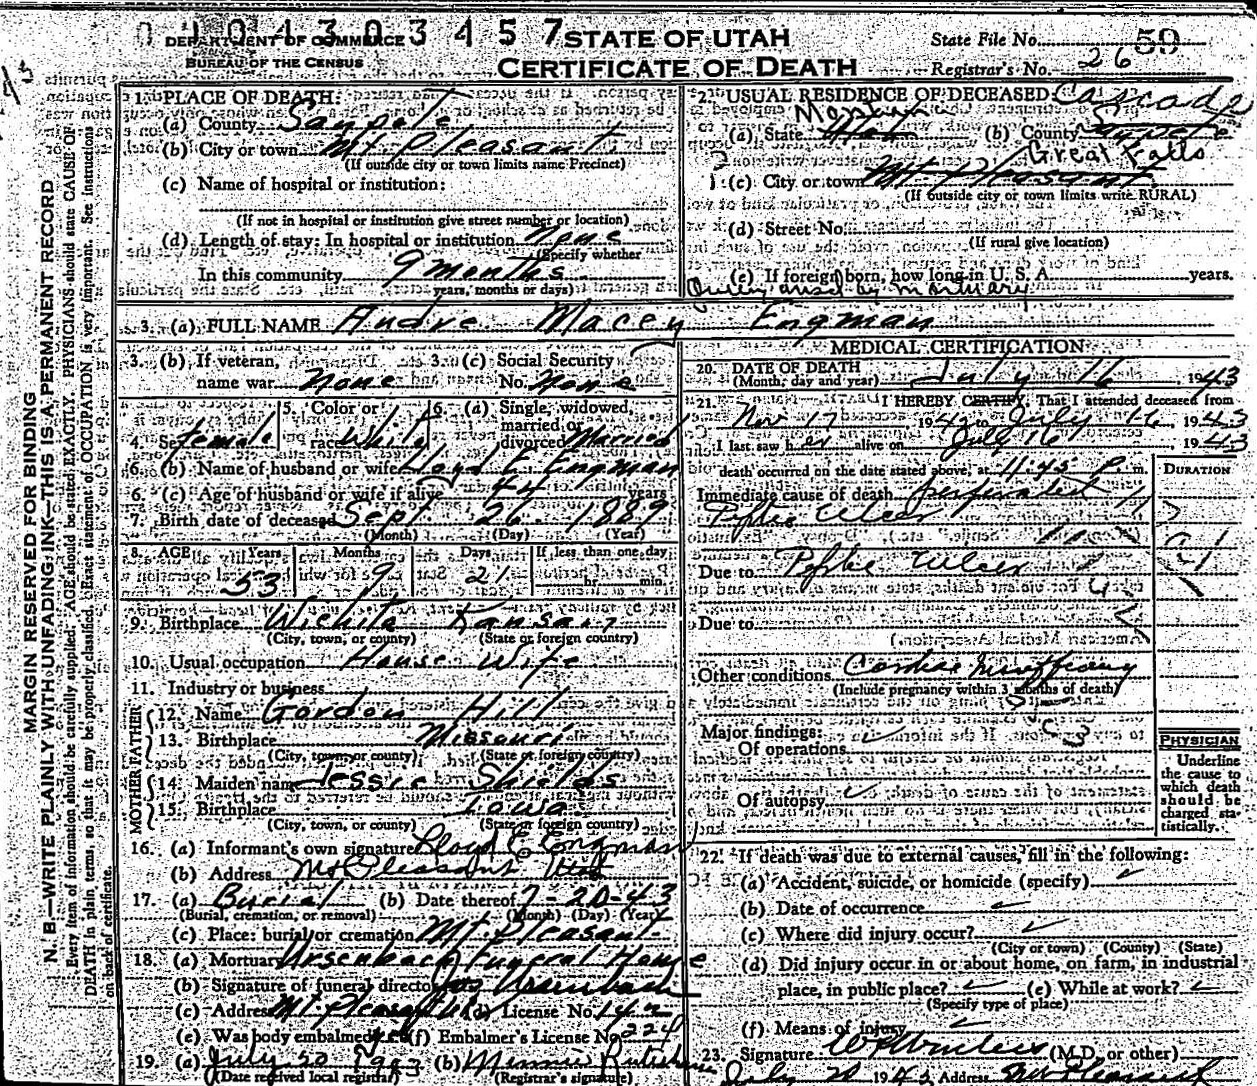 0 4 0 4 3 0 3 4 5 7
DEPARTMENT OF COMMERCE
BUREAU OF THE CENSUS
STATE OF UTAH
CERTIFICATE OF DEATH
State File No. 59
Registrar's No. 26
MARGIN RESERVED FOR BINDING
N. B.—WRITE PLAINLY WITH UNFADING INK—THIS IS A PERMANENT RECORD
Every item of information should be carefully supplied. AGE should be stated EXACTLY. PHYSICIANS should state CAUSE OF
DEATH in plain terms, so that it may be properly classified. Exact statement of OCCUPATION is very important. See instructions
on back of certificate.
1. PLACE OF DEATH:
(a) County Sanpete
(b) City or town Mt. Pleasant
(If outside city or town limits name Precinct)
(c) Name of hospital or institution:
(If not in hospital or institution give street number or location)
(d) Length of stay: In hospital or institution None
(Specify whether
In this community 9 months
years, months or days)
2. USUAL RESIDENCE OF DECEASED:
Montana Cascade
(a) State Utah (b) County Sanpete
Great Falls
(c) City or town Mt Pleasant
(If outside city or town limits write RURAL)
(d) Street No.
(If rural give location)
(e) If foreign born, how long in U. S. A. years.
Query ansd by mortuary
3. (a) FULL NAME Andre Macey Engman
3. (b) If veteran,
name war None
3. (c) Social Security
No. None
4. Sex female
5. Color or
race White
6. (a) Single, widowed,
married or
divorced Married
6. (b) Name of husband or wife Lloyd E Engman
6. (c) Age of husband or wife if alive 44 years
7. Birth date of deceased Sept 26 1889
(Month) (Day) (Year)
8. AGE Years Months Days If less than one day
53 9 21 hr. min.
9. Birthplace Wichita Kansas
(City, town, or county) (State or foreign country)
10. Usual occupation House Wife
11. Industry or business
FATHER
12. Name Gordon Hill
13. Birthplace Missouri
(City, town, or county) (State or foreign country)
MOTHER
14. Maiden name Jessie Shields
15. Birthplace Iowa
(City, town, or county) (State or foreign country)
16. (a) Informant's own signature Lloyd E Engman
(b) Address Mt Pleasant Utah
17. (a) Burial (b) Date thereof 7-20-43
(Burial, cremation, or removal) (Month) (Day) (Year)
(c) Place: burial or cremation Mt. Pleasant
18. (a) Mortuary Ursenbach Funeral Home
(b) Signature of funeral director Ursenbach
(c) Address Mt Pleasant (d) License No.
(e) Was body embalmed yes (f) Embalmer's License No. 224
19. (a) July 20 1943 (b) Minnie
(Date received local registrar) (Registrar's signature)
MEDICAL CERTIFICATION
20. DATE OF DEATH
(Month, day and year) July 16 1943
21. I HEREBY CERTIFY, That I attended deceased from
Nov 17 1942 to July 16, 1943
I last saw her alive on July 16 1943
death occurred on the date stated above, at 11:45 P. m.
DURATION
Immediate cause of death perforated
Peptic Ulcer
Due to Peptic Ulcer
Due to
Other conditions Cardiac
(Include pregnancy within 3 months of death)
Major findings:
Of operations
Of autopsy
PHYSICIAN
Underline
the cause to
which death
should be
charged sta-
tistically.
22. If death was due to external causes, fill in the following:
(a) Accident, suicide, or homicide (specify)
(b) Date of occurrence
(c) Where did injury occur?
(City or town) (County) (State)
(d) Did injury occur in or about home, on farm, in industrial
place, in public place? (e) While at work?
(Specify type of place)
(f) Means of injury
23. Signature (M.D. or other)
July 20 1943 Address Mt Pleasant